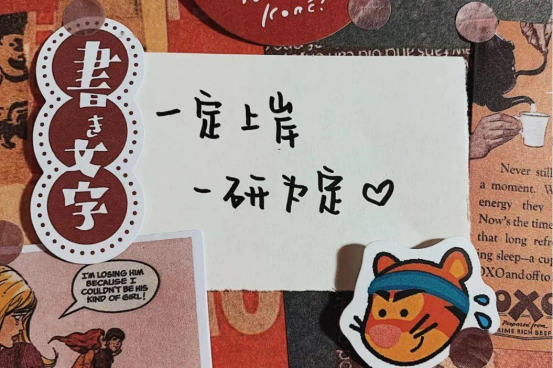 書き文字
一定上岸
一研为定♡
I'M LOSING HIM
BECAUSE I
COULDN'T BE HIS
KIND OF GIRL!
Never still
a moment. W
energy they
Now's the time
that long refr
ing sleep—a cup
OXO and off to
OXO
Prepared from
PRIME RICH BEEF